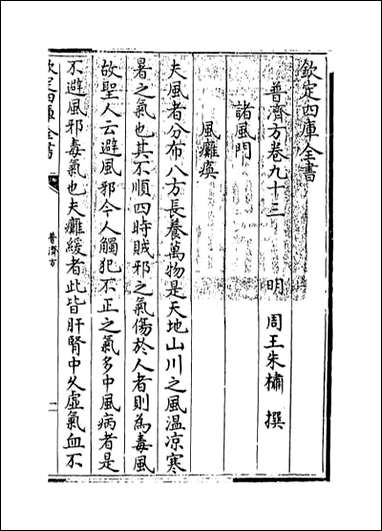 欽定四庫全書
普濟方卷九十三
明 周王朱橚 撰
諸風門
風癱瘓
夫風者分布八方長養萬物是天地山川之風温凉寒
暑之氣也其不順四時賊邪之氣傷於人者則為毒風
故聖人云避風邪今人觸犯不正之氣多中風病者是
不避風邪毒氣也夫癱緩者此皆肝腎中久虛氣血不
欽定四庫全書
普濟方
一